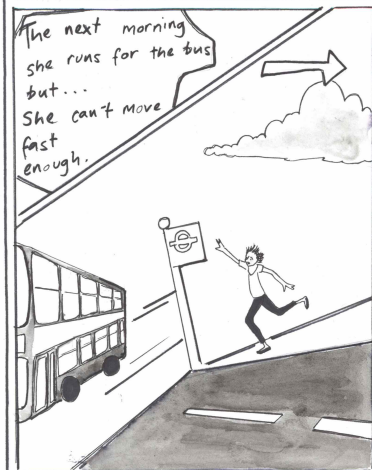 The next morning
she runs for the bus
but...
She can't move
fast
enough.